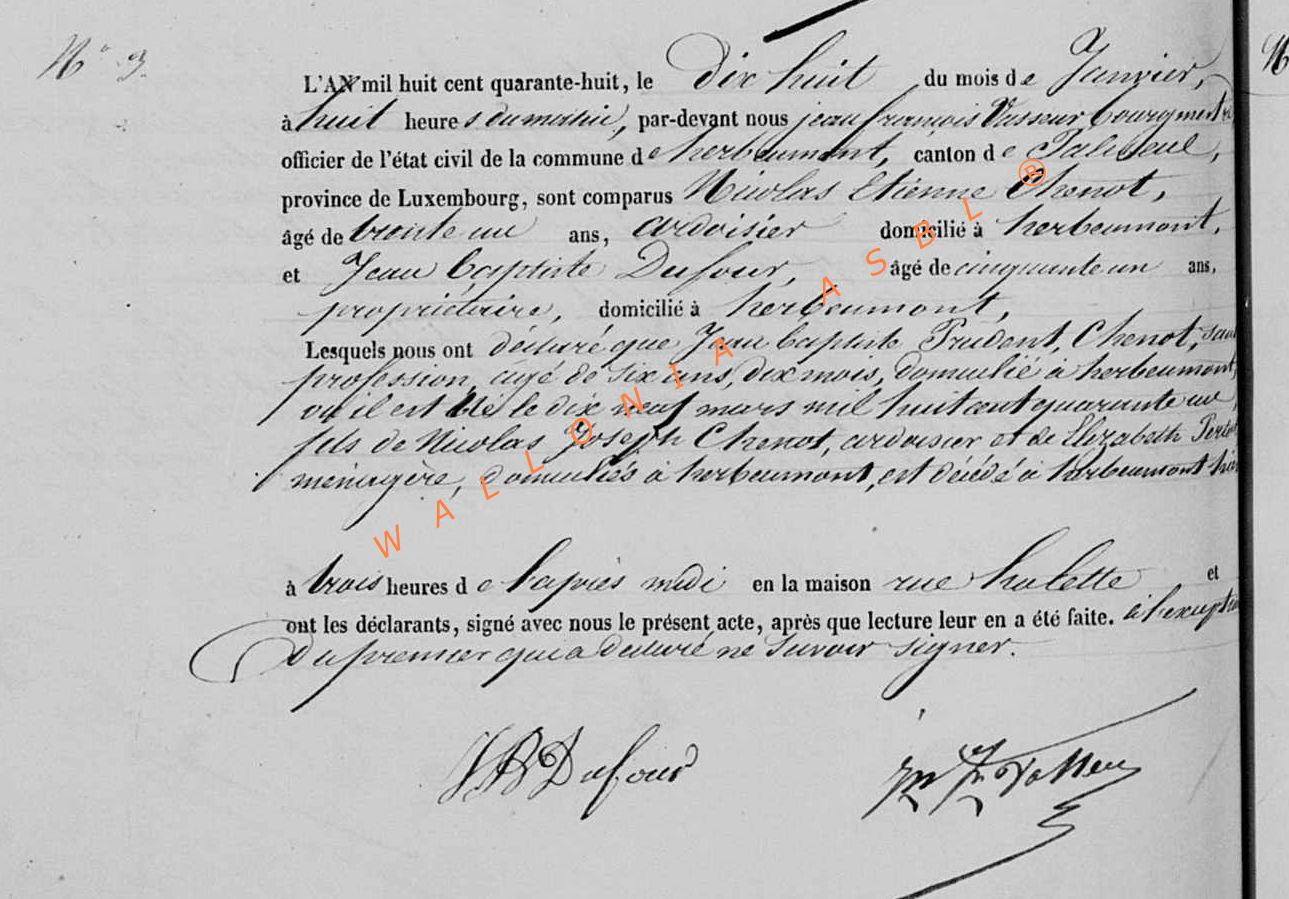 N° 3.
L'AN mil huit cent quarante-huit, le Dix huit du mois de Janvier,
à huit heures du matin, par-devant nous jean françois Vasseur bourgmestre
officier de l'état civil de la commune de herbeumont, canton de Paliseul,
province de Luxembourg, sont comparus Nicolas Etienne Chenot,
âgé de trente un ans, ardoisier domicilié à herbeumont,
et Jean baptiste Dufour, âgé de cinquante un ans,
propriétaire, domicilié à herbeumont,
Lesquels nous ont déclaré que Jean baptiste Prudent, Chenot, sans
profession, agé de six ans, dix mois, domicilié à herbeumont,
où il est Né le dix neuf mars mil huit cent quarante un,
fils de Nicolas Joseph Chenot, ardoisier et de Elizabeth
ménagère, domiciliés à herbeumont, est décédé à herbeumont hier
à trois heures de l'après midi en la maison rue holette et
ont les déclarants, signé avec nous le présent acte, après que lecture leur en a été faite. à l'exception
Du premier qui a déclaré ne savoir signer.
JBDufour
WALLONIA ASBL ®